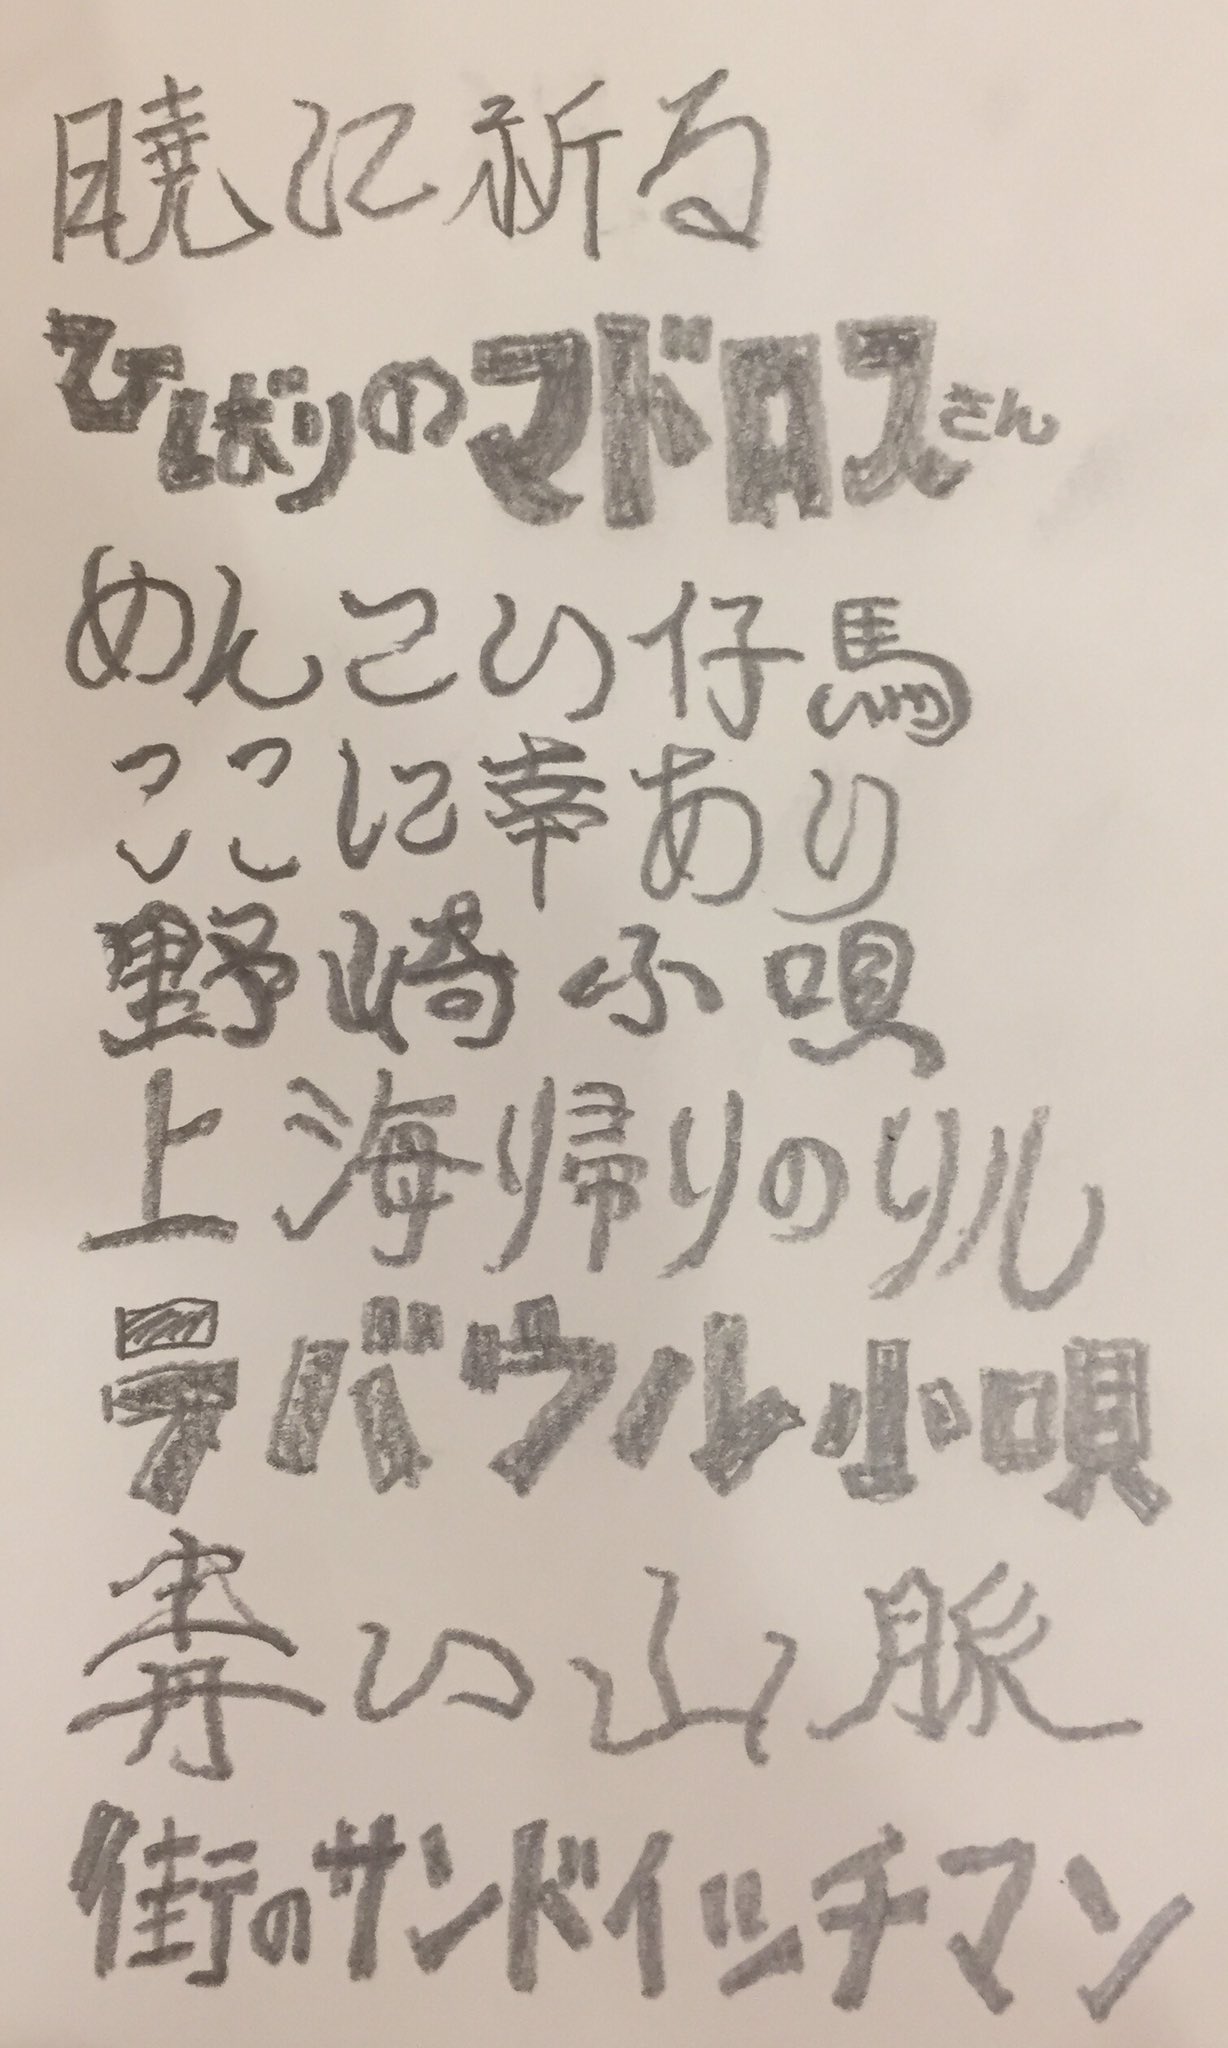 暁に祈る
ひばりのマドロスさん
めんこい仔馬
ここに幸あり
野崎小唄
上海帰りのリル
ラバウル小唄
青い山脈
街のサンドイッチマン